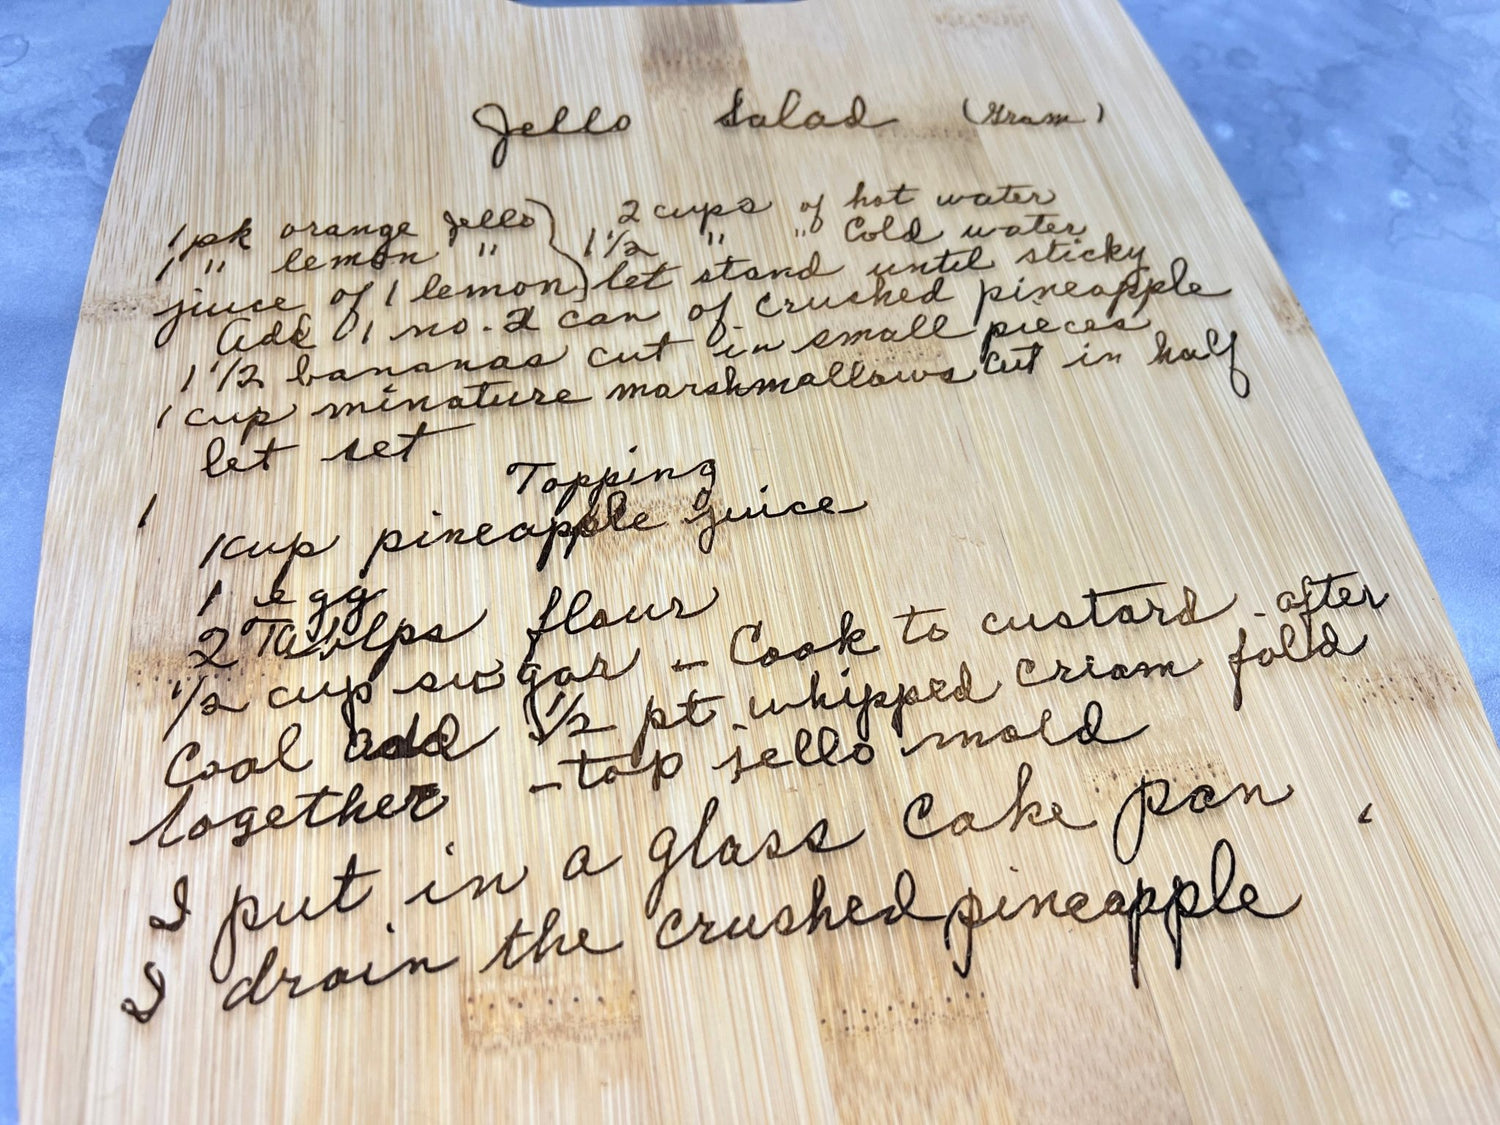 Jello Salad (Gram)
1 pk orange Jello } 2 cups of hot water
1 " lemon " 1 1/2 " " Cold water
juice of 1 lemon } let stand until sticky
Add 1 no. 2 can of crushed pineapple
1 1/2 bananas cut in small pieces
1 cup minature marshmallows cut in half
let set
Topping
1 cup pineapple juice
1 egg
2 Tablps flour
1/2 cup sugar - Cook to custard - after
Cool add 1/2 pt whipped cream fold
together - top jello mold
I put in a glass cake pan,
I drain the crushed pineapple